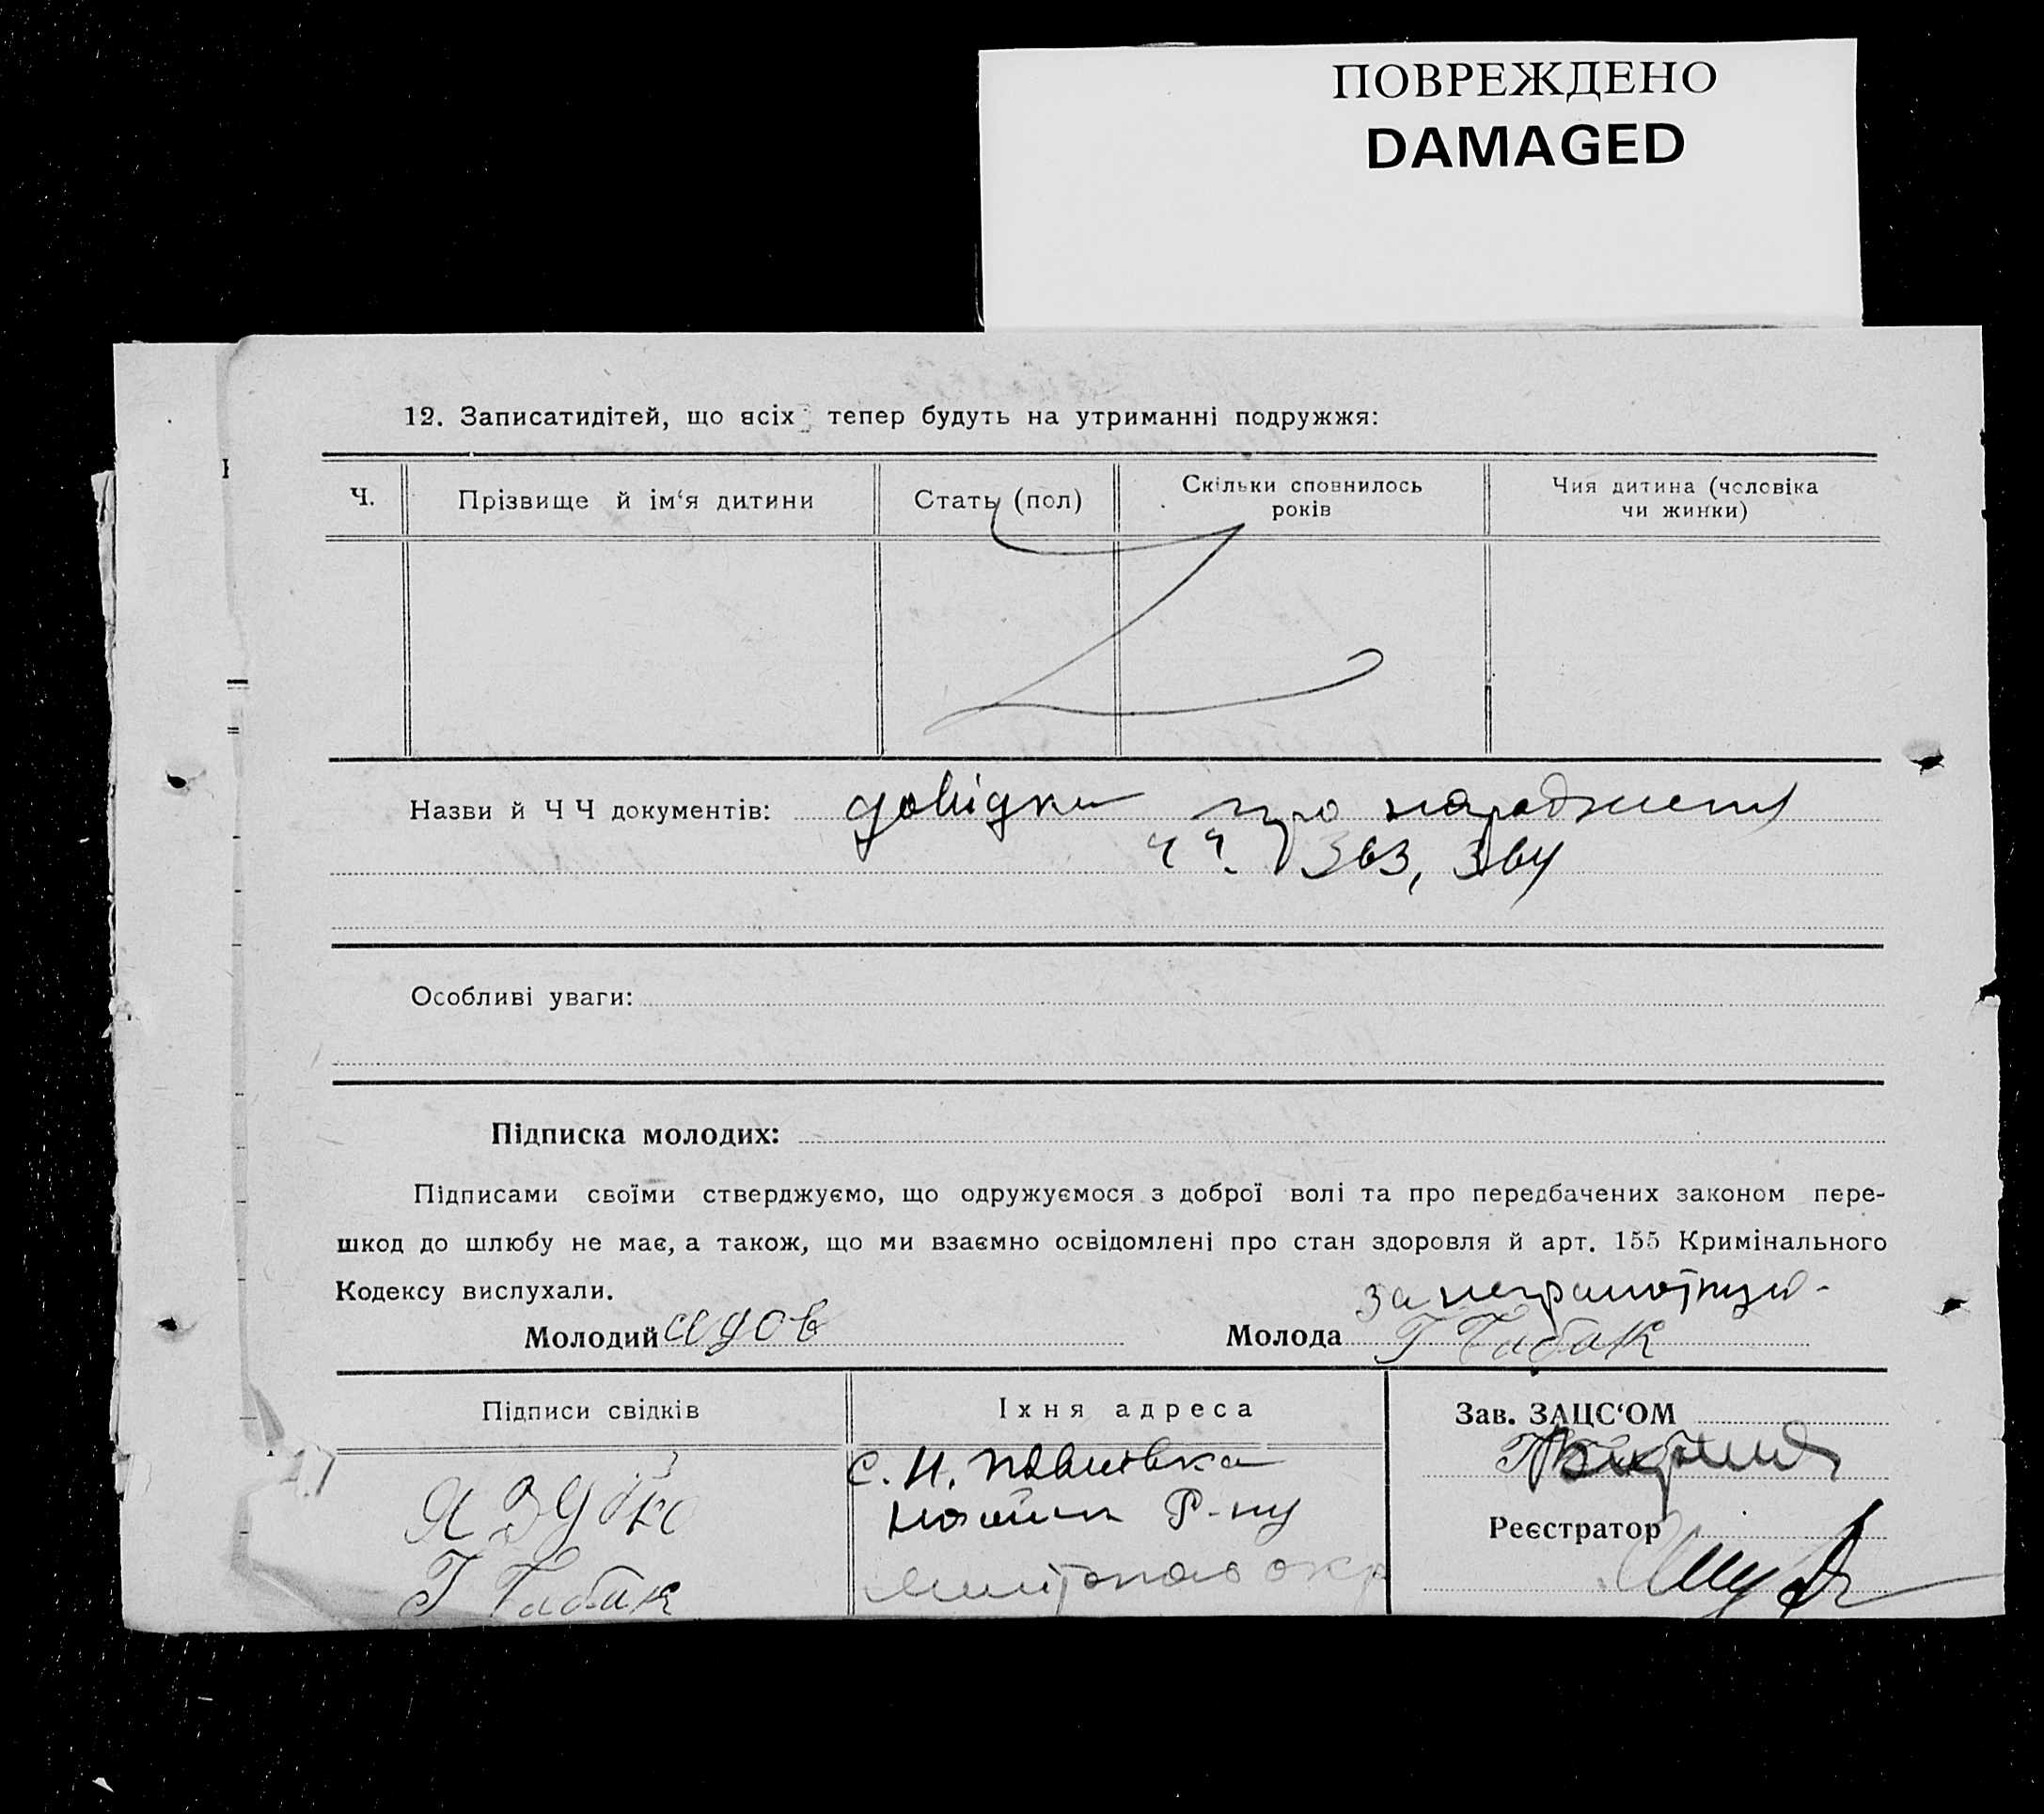 ПОВРЕЖДЕНО
DAMAGED
12. Записатидітей, що всіх тепер будуть на утриманні подружжя:
Ч.
Прізвище й ім‘я дитини
Стать (пол)
Скільки сповнилось років
Чия дитина (чоловіка чи жинки)
Назви й Ч Ч документів: довідки про народження
ч ч. 363, 364
Особливі уваги:
Підписка молодих:
Підписами своїми стверджуємо, що одружуємося з доброї волі та про передбачених законом пере-
шкод до шлюбу не має, а також, що ми взаємно освідомлені про стан здоровля й арт. 155 Кримінального
Кодексу виспухали.
за неграмотную
Молодий
Молода Г Табак
Підписи свідків
Їхня адреса
Зав. ЗАЦС‘ОМ
с. Н. Павлівка
Р-ну
Реєстратор
Г Табак
окр